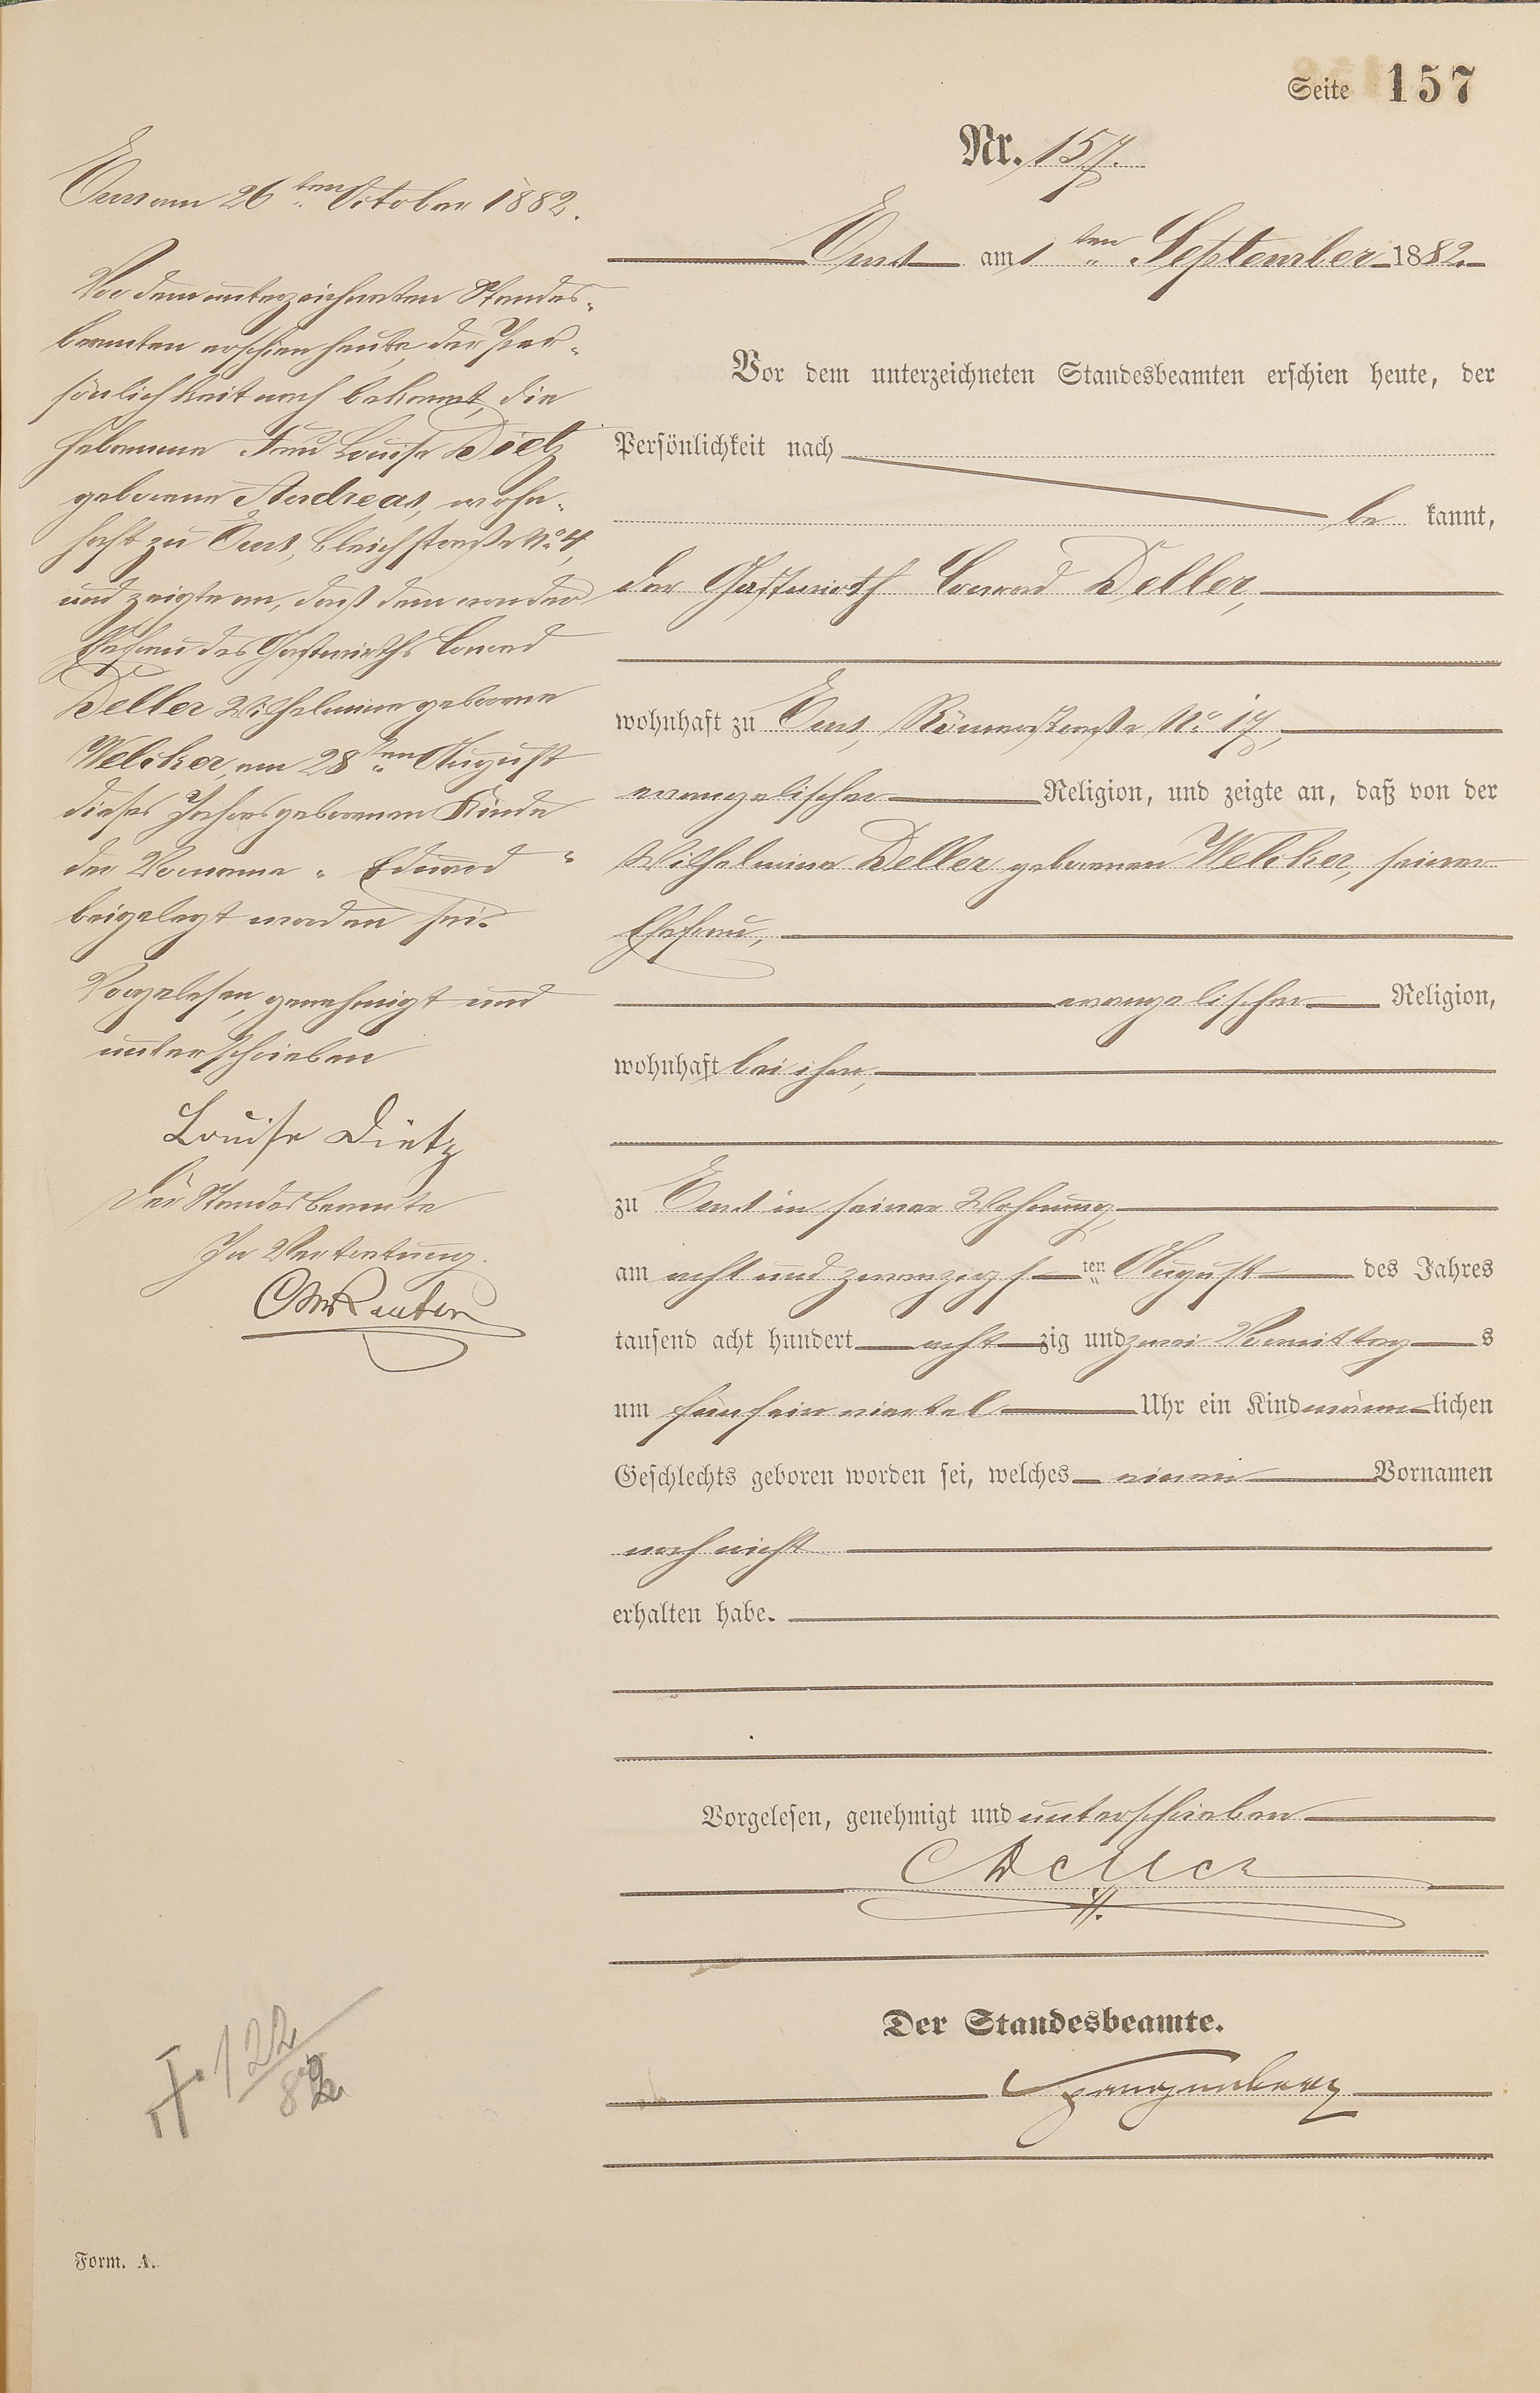 Seite 157
Nr. 157.
Ems am 1ten September 1882.
Vor dem unterzeichneten Standesbeamten erschien heute, der
Persönlichkeit nach
be kannt,
der Gastwirth Conrad Deller,
wohnhaft zu Ems, Römerstraße No. 17,
evangelischer Religion, und zeigte an, daß von der
Wilhelmine Deller geborenen Welcker, seiner
Ehefrau,
evangelischer Religion,
wohnhaft bei ihm,
zu Ems in seiner Wohnung,
am acht und zwanzigs ten August des Jahres
tausend acht hundert acht zig und zwei Vormittag s
um fünf ein viertel Uhr ein Kind männ lichen
Geschlechts geboren worden sei, welches einen Vornamen
noch nicht
erhalten habe.
Vorgelesen, genehmigt und unterschrieben
C Deller
Der Standesbeamte.
Ems am 26ten October 1882.
Vor dem unterzeichneten Standes-
beamten erschien heute, der Per-
sönlichkeit nach bekannt, die
Hebamme Frau Louise Dietz
geborene Andreas, wohn-
haft zu Ems, Bleichstraße No. 4,
und zeigte an, daß dem von der
Ehefrau des Gastwirths Conrad
Deller Wilhelmine geborene
Welcker, am 28ten August
dieses Jahres geborenen Kinde
der Vorname „Eduard“
beigelegt worden sei.
Vorgelesen, genehmigt und
unterschrieben
Louise Dietz
Der Standesbeamte
In Vertretung.
II. 122/82
Form. A.